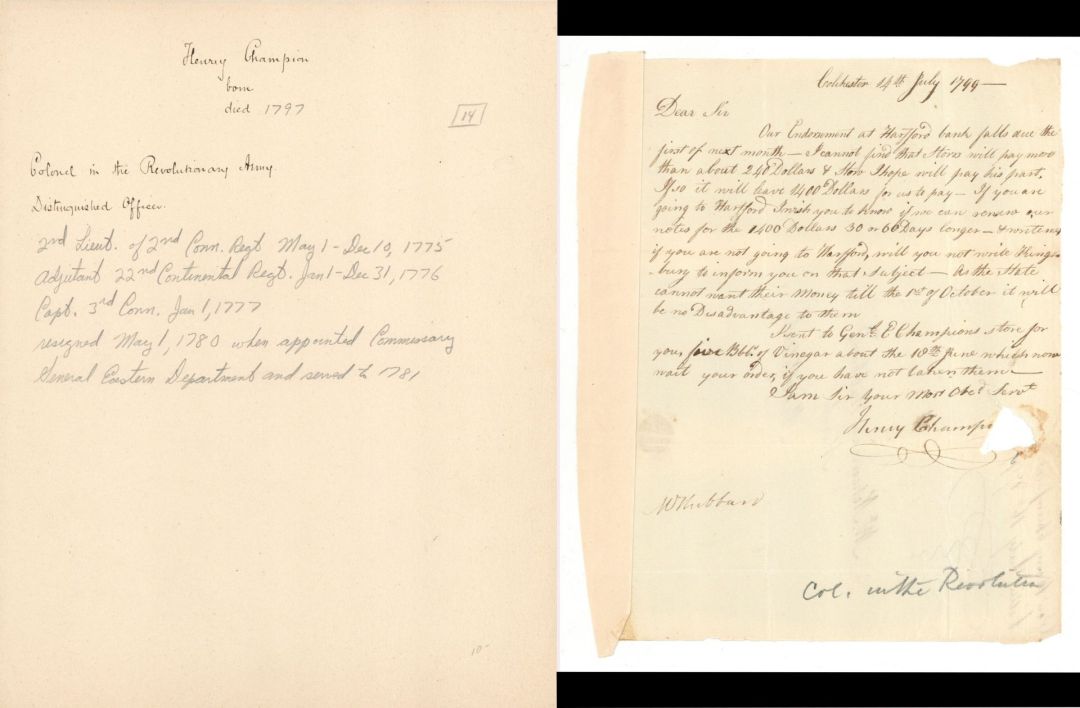 Henry Champion
born
died 1797
14
Colonel in the Revolutionary Army.
Distinguished Officer.
2nd Lieut. of 2nd Conn. Regt May 1 - Dec 10, 1775
Adjutant 22nd Continental Regt. Jan 1 - Dec 31, 1776
Capt. 3rd Conn. Jan 1, 1777
resigned May 1, 1780 when appointed Commissary
General Eastern Department and served to 1781
10-
Colchester 14th July 1799 —
Dear Sir
Our Endorsment at Hartford bank falls due the
first of next month — I cannot find that Storrs will pay more
than about 240 Dollars & Stow I hope will pay his part.
If so it will leave 1400 Dollars for us to pay — If you are
going to Hartford I wish you to know if we can renew our
notes for the 1400 Dollars 30 or 60 Days longer — & write me
if you are not going to Hartford, will you not write Kings-
-bury to inform you on that Subject — As the State
cannot want their Money till the 1st of October it will
be no Disadvantage to them
I sent to Genl. E Champions store for
your five Bbls. of Vinegar about the 10th June which now
wait your order, if you have not taken them —
I am Sir your Most Obed Servt
Henry Champi
W Hubbard
Col. in the Revolution